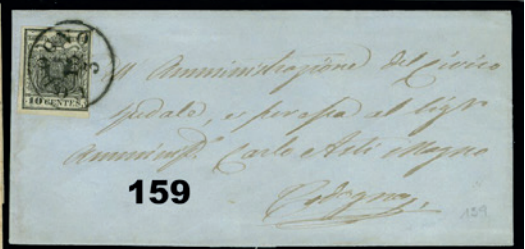 10 CENTES.
All Amministrazione del Civico
Spedale, e per essa al Sigr
Amminisr. Carlo
Codogno
159
159